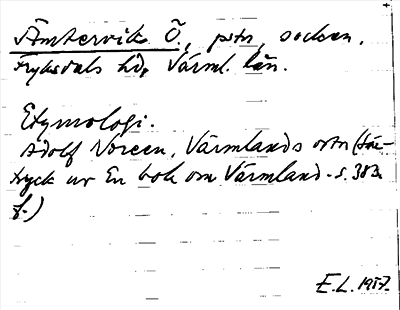 Ämtervik Ö., prtn, socken.
Fryksdals hd, Värml. län.
Etymologi.
Adolf Noreen, Värmlands ortn (Sär-
tryck ur En bok om Värmland - s. 383
f.)
E.L. 1957.